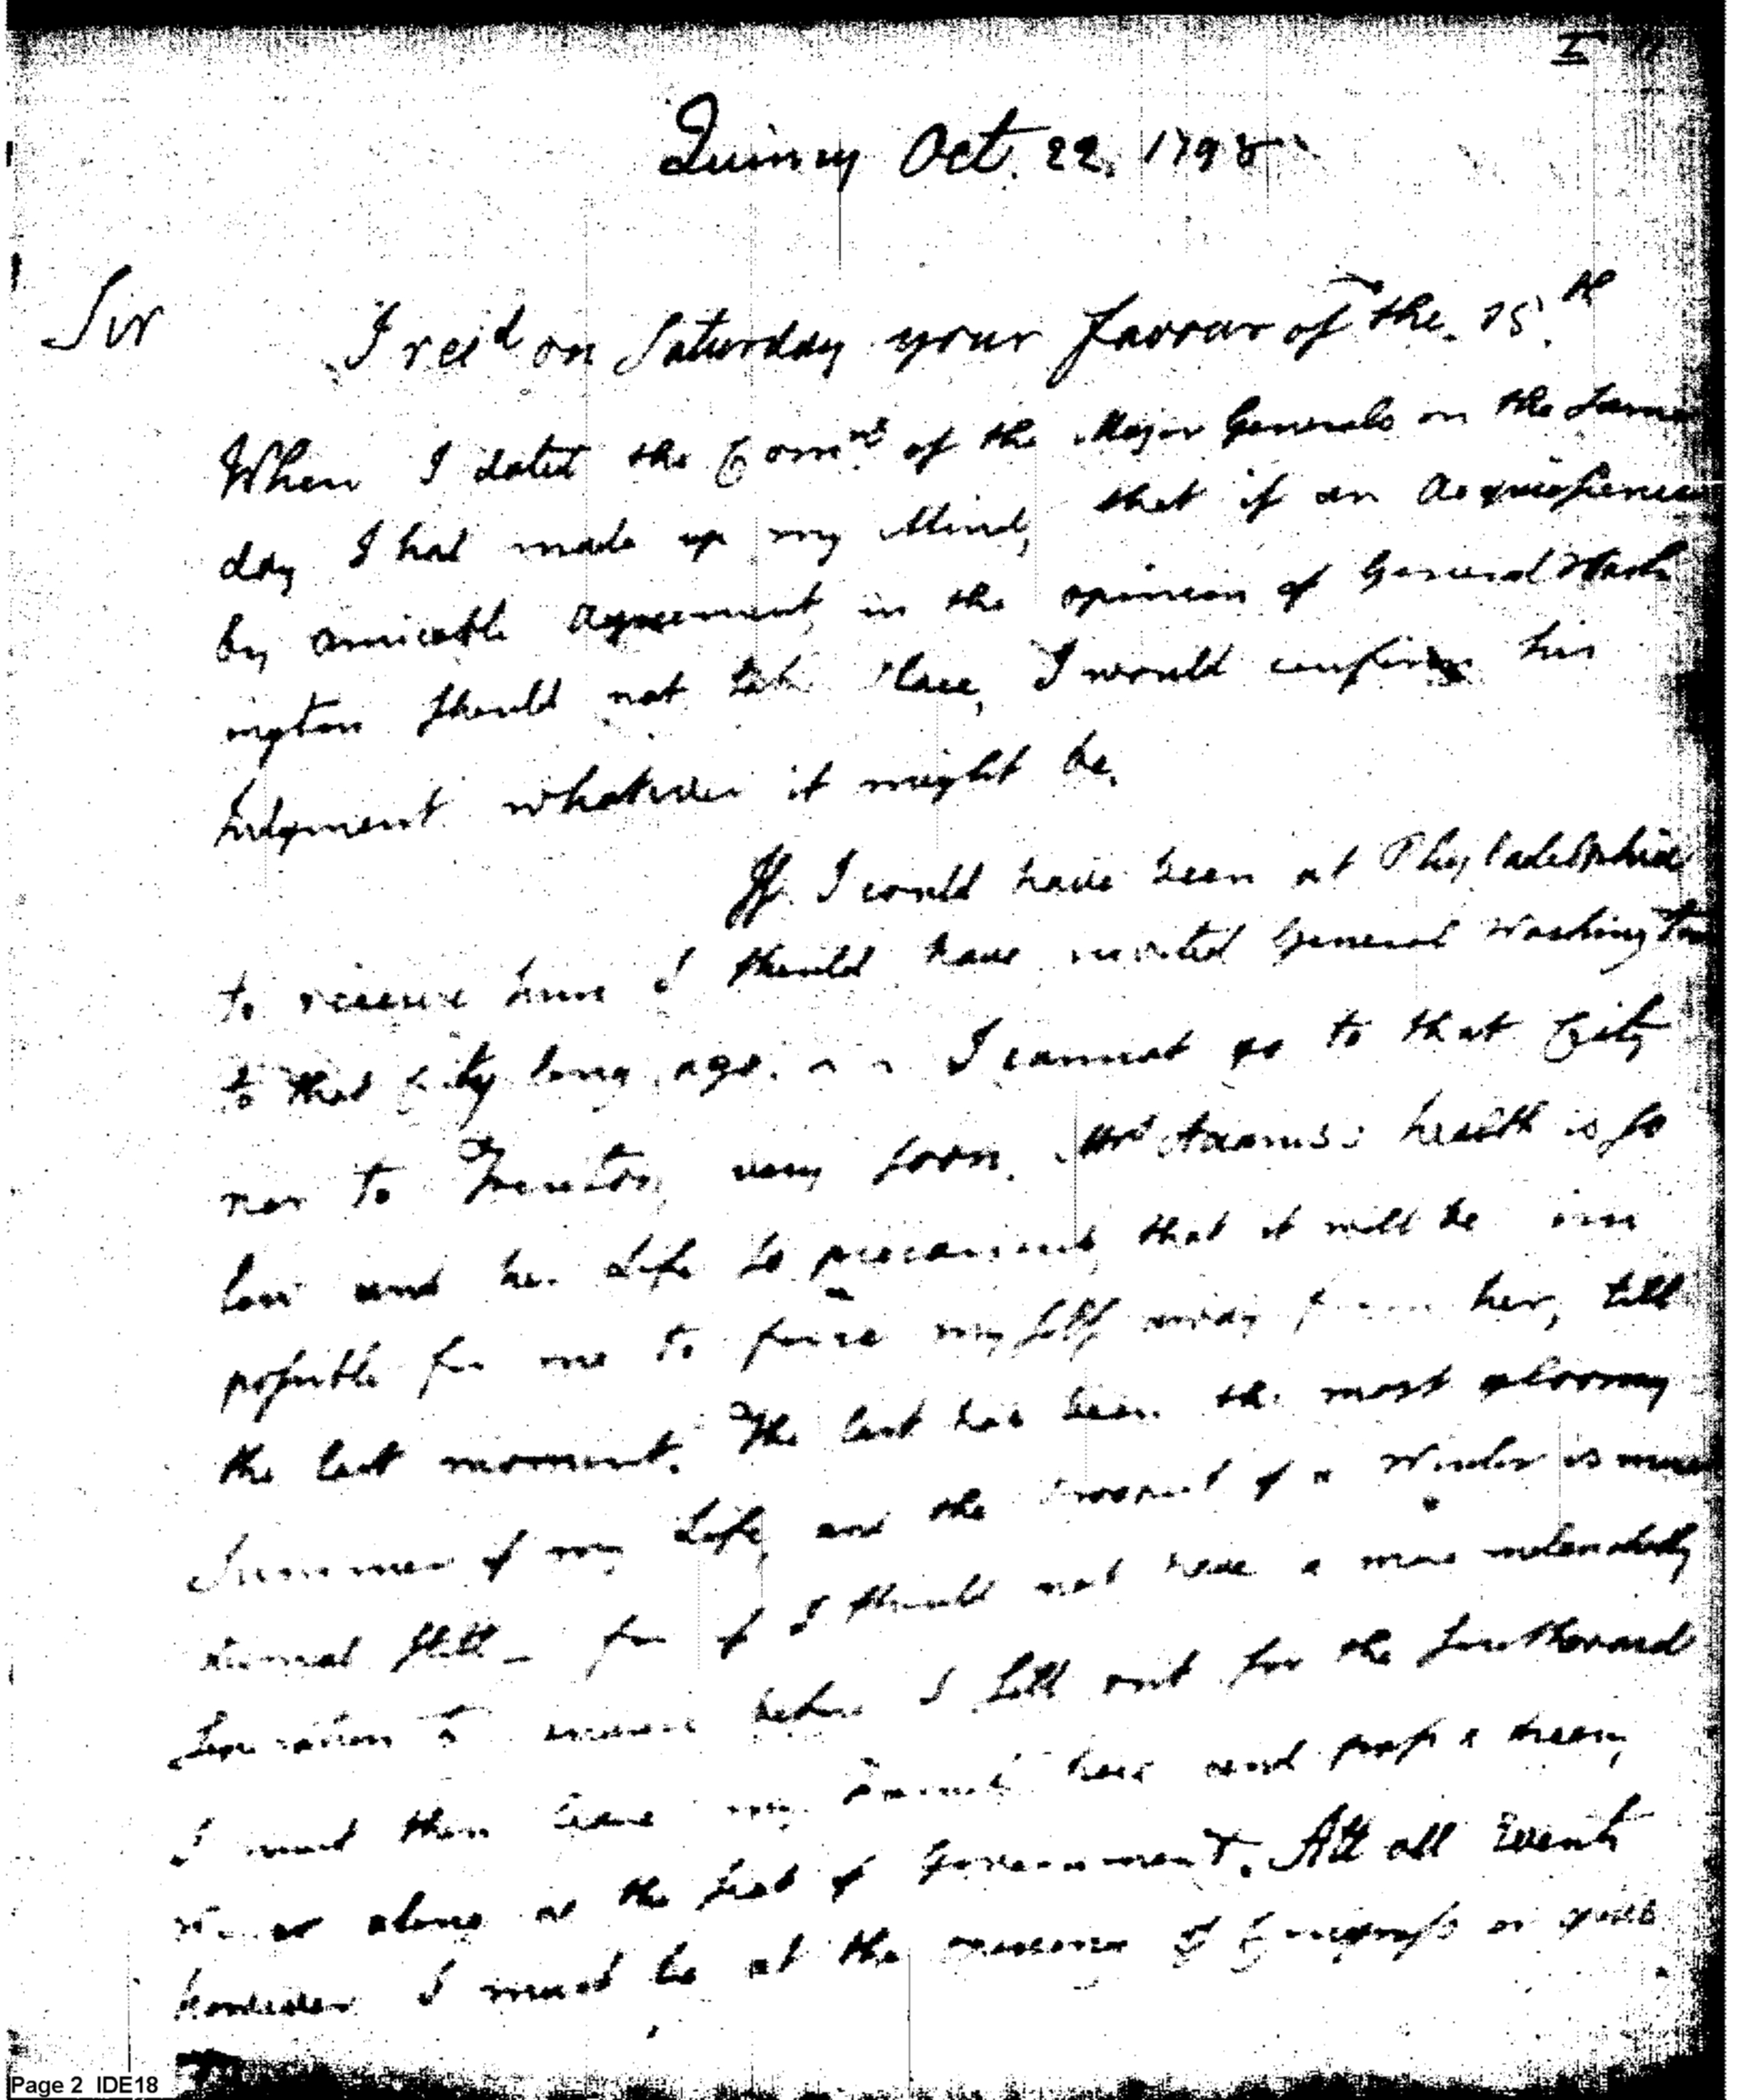 Quincy Oct. 22. 1798
Sir
I recd on Saturday your favour of the 15th
When I dated the Comns of the Major Generals on the Same
day I had made up my Mind, that if an Acquiescence
by amicable Agreement, in the opinion of General Wash
ington should not take Place, I would confirm his
Judgment whatever it might be.
If I could have been at Phyladelphia
to receive him I should have invited General Washington
to that City long ago. I cannot go to that City
nor to Trenton, very soon. Mrs Adams's health is so
low and her Life so precarious, that it will be im
possible for me to force myself away from her, till
the last moment. The last has been the most gloomy
Summer of my Life, and the prospect of a Winter is more
dismal still — for if I should not have a more melancholly
Seperation to endure before I sett out for the Southward
I must then leave my Family here and pass a dreary
Winter alone at the Seat of Government. Att all Events
however I must be at the opening of Congress or
Page 2 IDE18